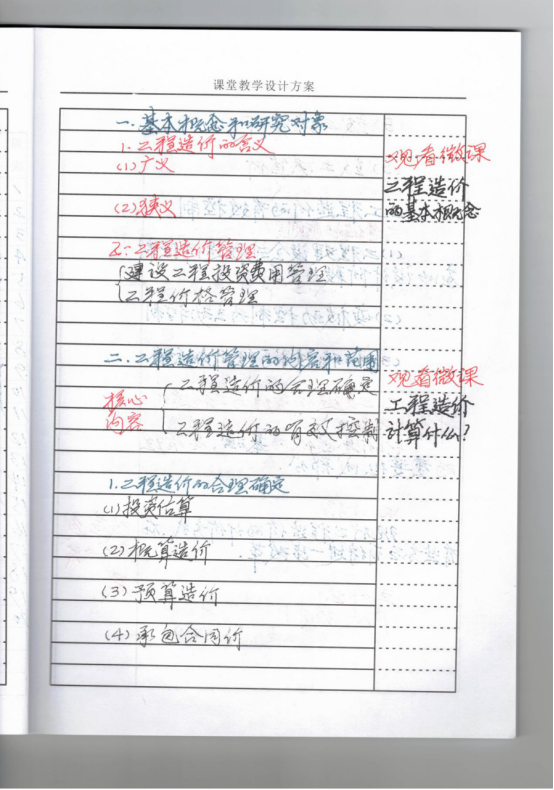 课堂教学设计方案
一.基本概念和研究对象
1.工程造价的含义
(1)广义
(2)狭义
2.工程造价管理
建设工程投资费用管理
工程价格管理
二.工程造价管理的内容和范围
核心内容
工程造价的合理确定
工程造价的有效控制
1.工程造价的合理确定
(1)投资估算
(2)概算造价
(3)预算造价
(4)承包合同价
观看微课
工程造价
的基本概念
观看微课
工程造价
计算什么?